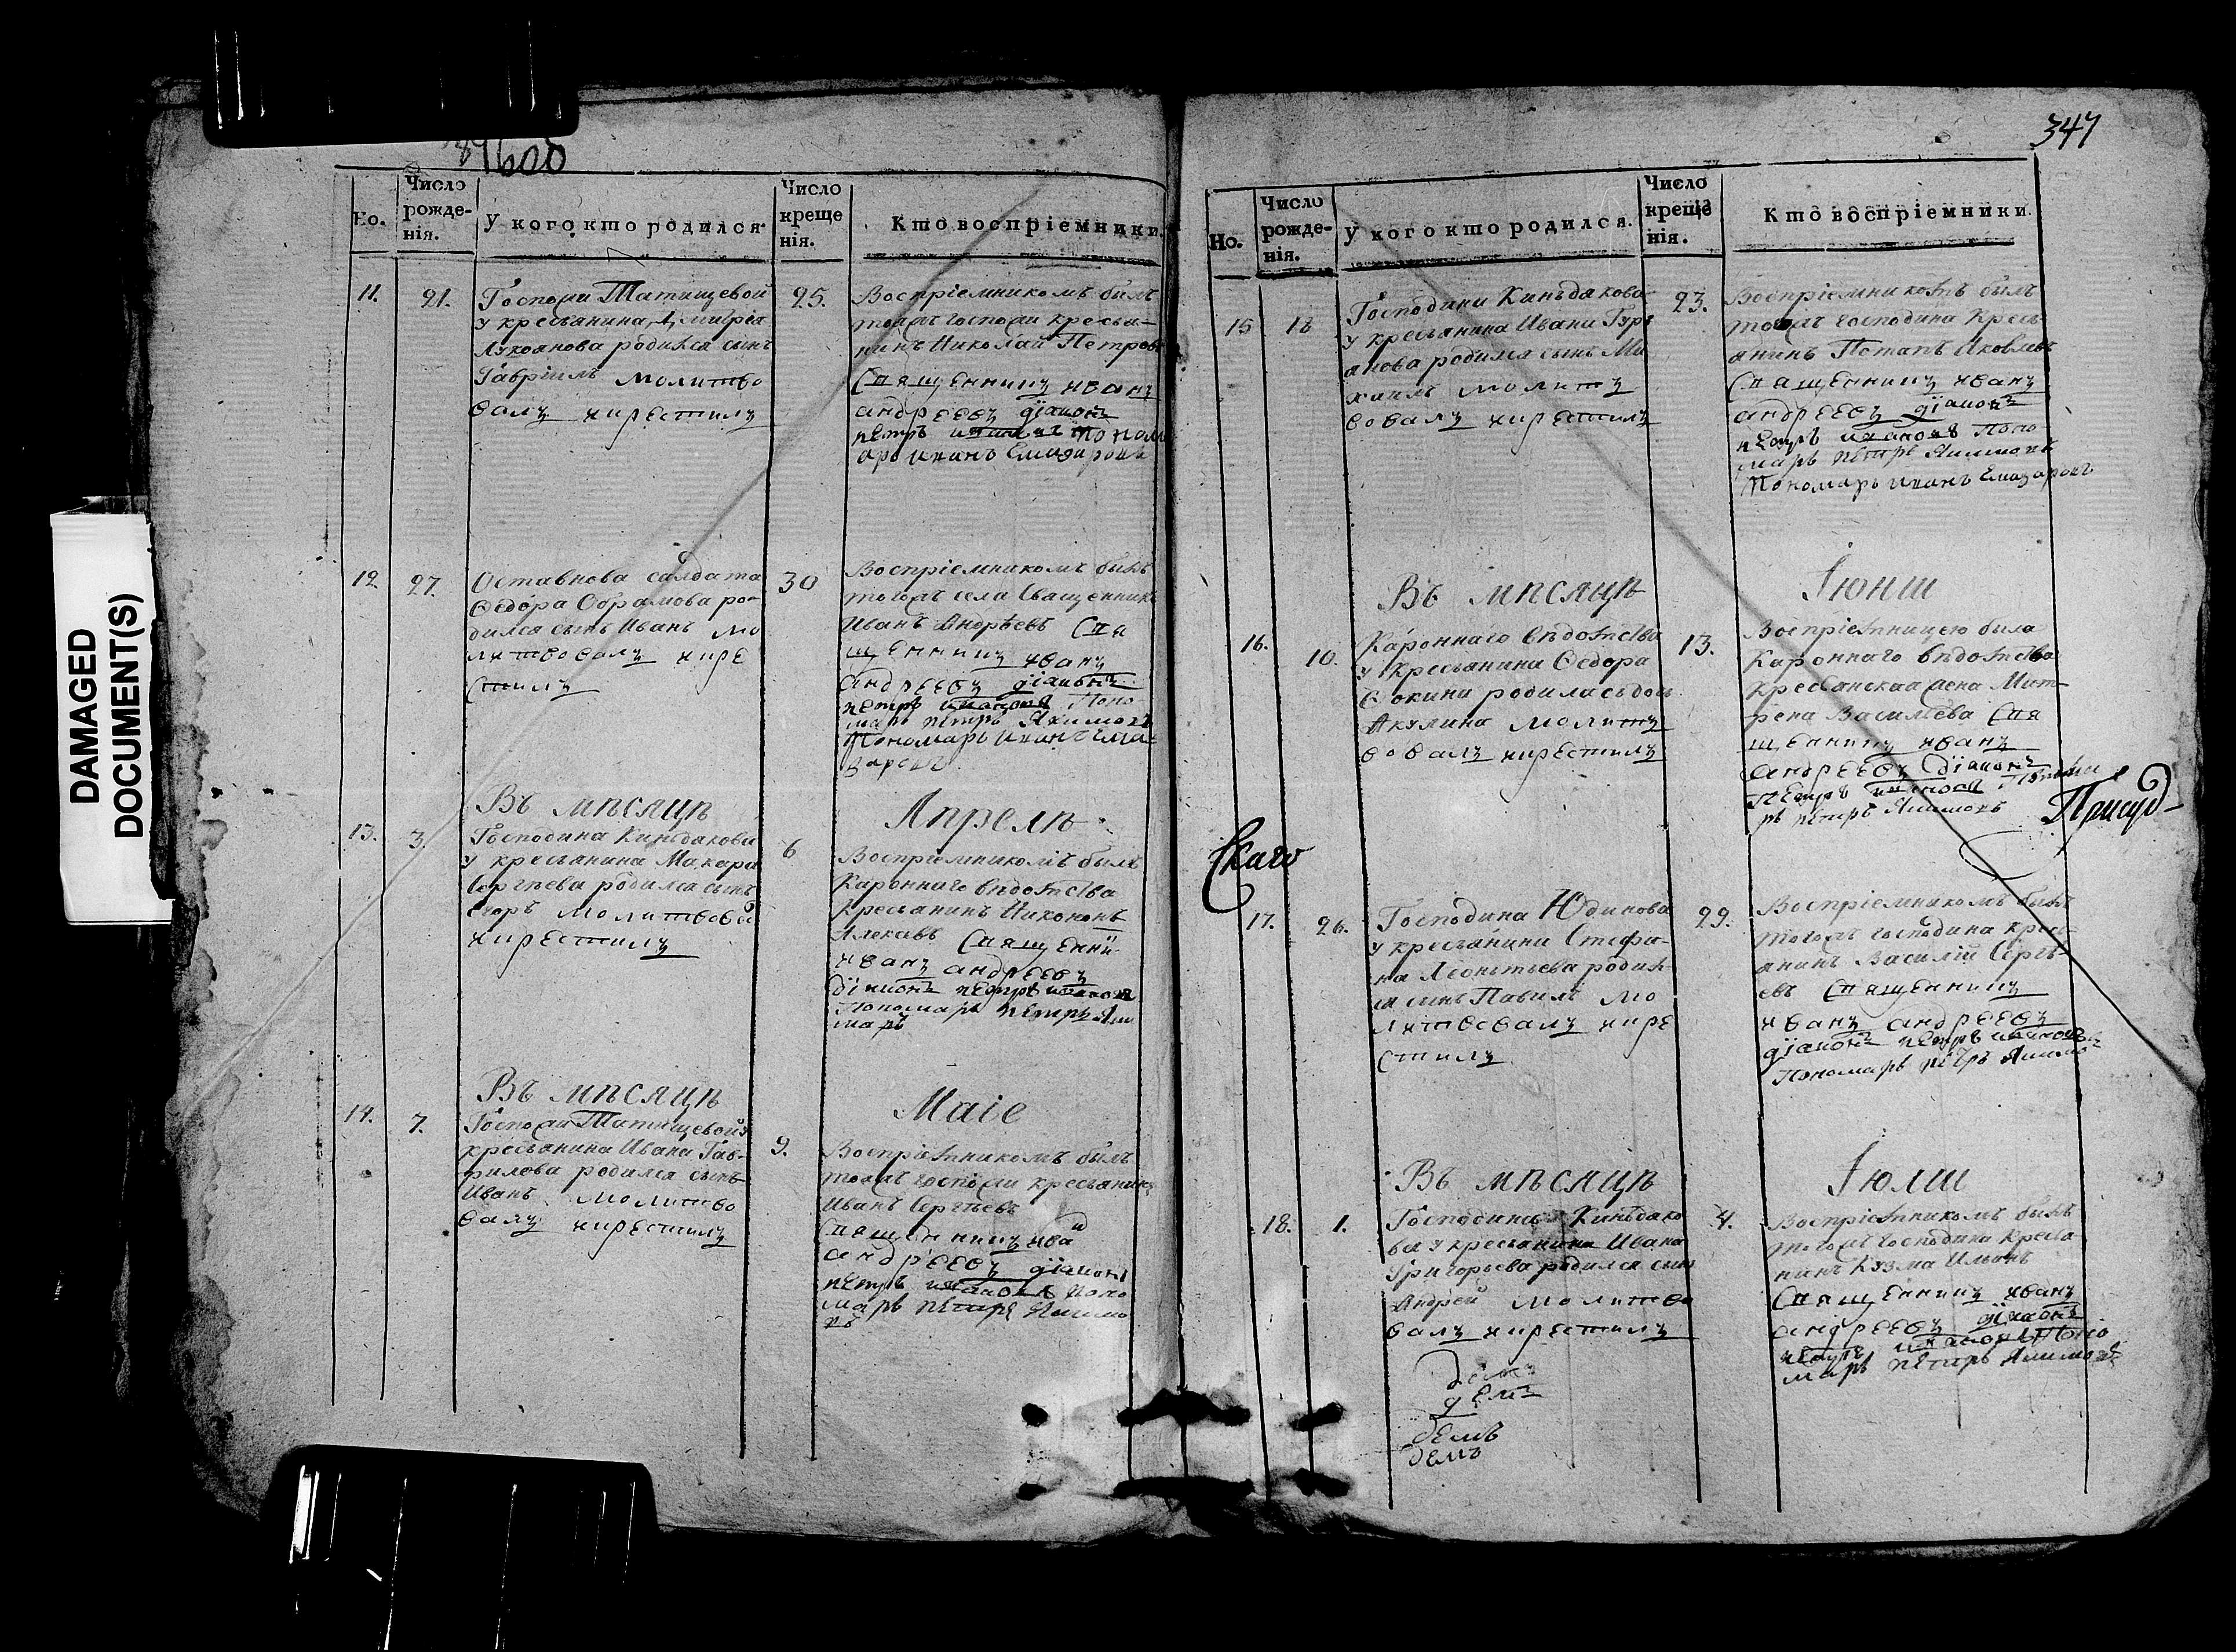 DAMAGED
DOCUMENT(S)
347
Но.
Число
рожде-
нія.
у кого кто родился.
Число
креще
нія.
Кто воспріемники.
11.
21.
Госпожи Татищевой
у кресьянина Дмитрея
Лукоянова родился сынъ
Гавріилъ молитво
валъ икрестилъ
25.
Воспріемникомъ былъ
тоежъ госпожи кресья-
нинъ Николай Петровъ
Священникъ иванъ
андреевъ діаконъ
петръ ивановъ поном
арь иванъ Елизаровъ
12
27.
Оставнова салдата
Ѳедора Обрамова ро-
дился сынъ Иванъ мо
литвовалъ икре
стилъ
30
Воспріемникомъ былъ
тогожъ села Священникъ
Иванъ Андреевъ Свя
щенникъ иванъ
андреевъ діаконъ
петръ ивановъ Поно
марь петръ Якимовъ
Пономарь иванъ Ели
заровъ
Въ мѣсяцѣ
Апрелѣ
13.
3.
Господина Киньдякова
у кресьянина Макара
Сергѣева родился сынъ
Егоръ молитвова
икрестилъ
6
Воспріемникомъ былъ
Каронного вѣдомства
Кресьянинъ Никононъ
Алекавъ Священни
иванъ андреевъ
діаконъ петръ ивановъ
Пономарь петръ Яки
Въ мѣсяцѣ
Маіе
14.
7.
Госпожи Татищевой у
кресьянина Ивана Гав-
рилова родился сынъ
Иванъ молитво
валъ икрестилъ
9.
Воспріемникомъ былъ
тоежъ госпожи кресьянинъ
Иванъ Сергѣевъ
Священникъ ива
андреевъ діаконъ
петръ ивановъ поно
марь петръ Якимо
въ
Но.
Число
рожде-
нія.
у кого кто родился.
Число
креще
нія.
Кто воспріемники.
15
18
Господина Киньдякова
у кресьянина Ивана Гурь
анова родился сынъ Ми
хаилъ молитъ
вовалъ икрестилъ
23.
Воспріемникомъ былъ
тогожъ господина Кресь
янинъ Потапъ Яковлевъ
Священникъ иванъ
андреевъ діаконъ
петръ ивановъ Поно
марь петръ Якимовъ
Пономарь иванъ Елизаровъ
Въ мѣсяцѣ
Іюни
16.
10.
Каронного вѣдомства
у кресьянина Ѳедора
Ѳокина родилась дочь
Акулина молитъ
вовалъ икрестилъ
13.
Воспріемницею была
Каронного вѣдомства
кресьянская жена Мат-
рена Васильева Свя
щенникъ иванъ
андреевъ діаконъ
Петръ ивановъ Понома
рь петръ Якимовъ
Присуд-
Скаго
17.
26.
Господина Юдинова
у кресьянина Стефа-
на Леонтьева родил-
ся сынъ Павилъ мо
литвовалъ икре
стилъ
29.
Воспріемникомъ былъ
тогожъ господина кресь-
янинъ Василій Сергѣ-
евъ Священникъ
иванъ андреевъ
діаконъ петръ ивановъ
Пономарь петръ Якимо
Въ мѣсяцѣ
Іюли
18.
1.
Господина Киньдяко
ва у кресьянина Ивана
Григорьева родился сынъ
Андрей молитво
валъ икрестилъ
4.
Воспріемникомъ былъ
тогожъ господина кресья
нинъ Кузма Ильинъ
Священникъ иванъ
андреевъ діаконъ
петръ ивановъ Поно
марь петръ Якимовъ
демъ
демъ
демъ